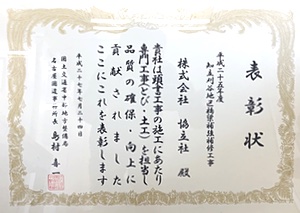 表彰状
平成二十五年度
知立刈谷地区橋梁補強補修工事
株式会社 協立社 殿
貴社は頭書工事の施工にあたり
専門工事(とび・土工)を担当し
品質の確保・向上に
貢献されました
ここにこれを表彰します
平成二十七年七月二十四日
国土交通省中部地方整備局
名古屋国道事務所長 島村喜一